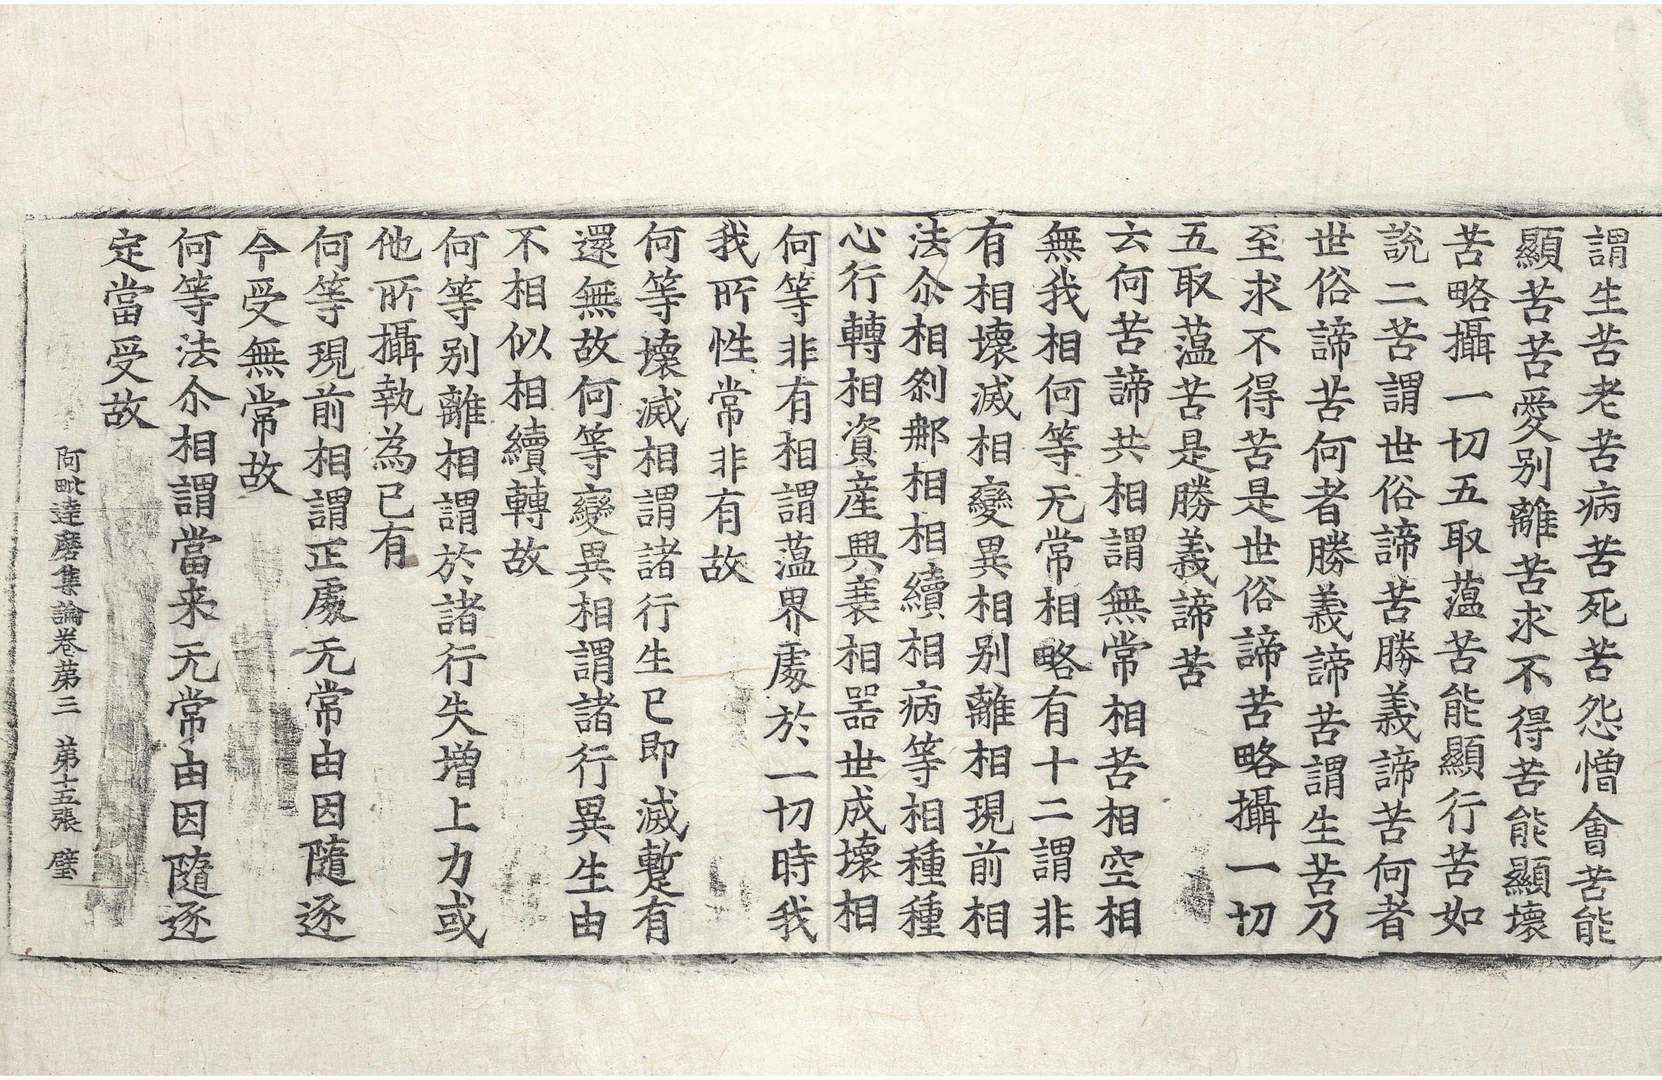 謂生苦老苦病苦死苦怨憎會苦能
顯苦苦愛别離苦求不得苦能顯壞
苦略攝一切五取蕰苦能顯行苦如
說二苦謂世俗諦苦勝義諦苦何者
世俗諦苦何者勝義諦苦謂生苦乃
至求不得苦是世俗諦苦略攝一切
五取蕰苦是勝義諦苦
云何苦諦共相謂無常相苦相空相
無我相何等无常相略有十二謂非
有相壞滅相變異相别離相現前相
法尒相刹那相相續相病等相種種
心行轉相資產興衰相器世成壞相
何等非有相謂蕰界處於一切時我
我所性常非有故
何等壞滅相謂諸行生已即滅蹔有
還無故何等變異相謂諸行異生由
不相似相續轉故
何等别離相謂於諸行失增上力或
他所攝執為已有
何等現前相謂正處无常由因隨逐
今受無常故
何等法尒相謂當来无常由因隨逐
定當受故
阿毗達磨集論卷苐三 苐十五張 璧